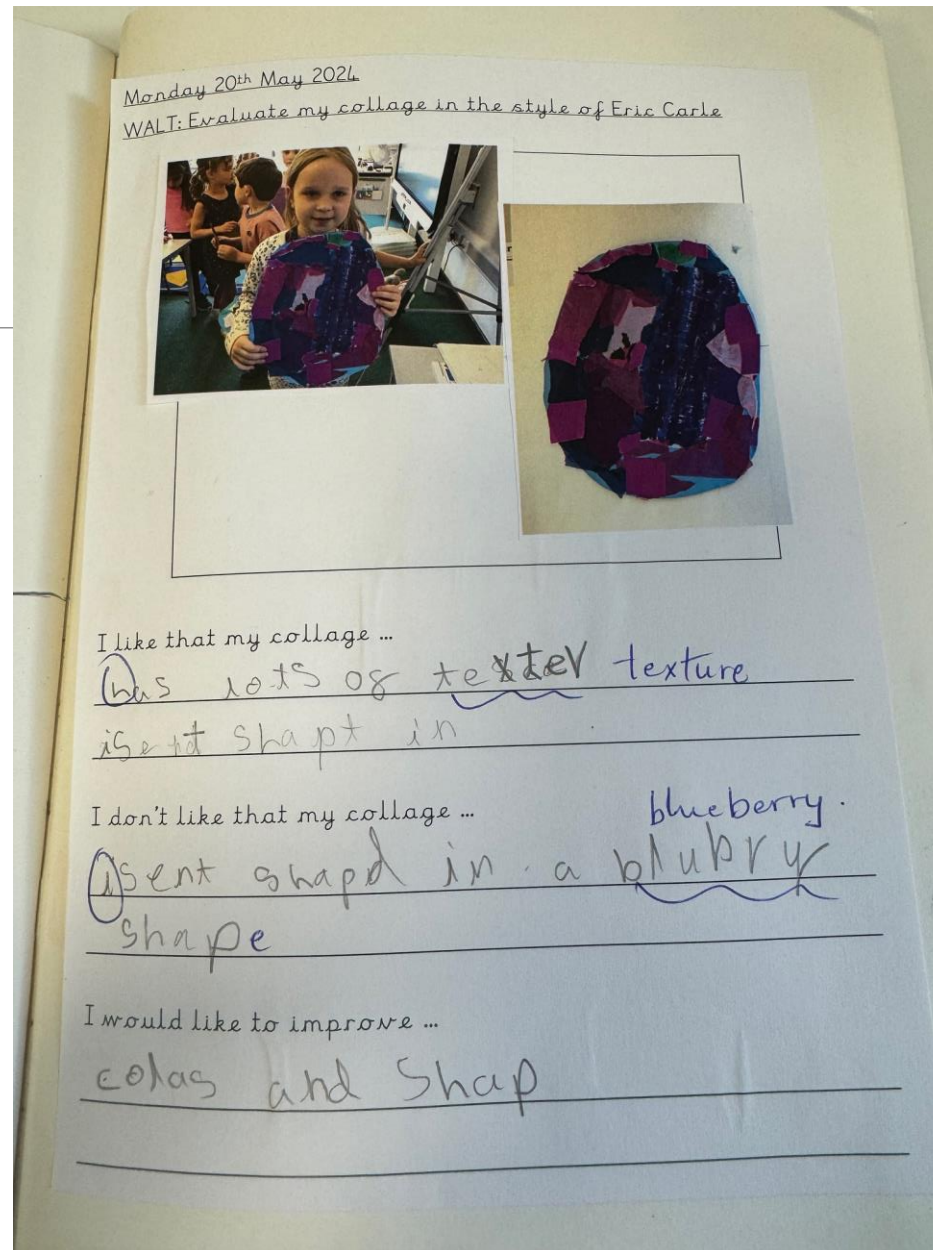 Monday 20th May 2024
WALT: Evaluate my collage in the style of Eric Carle
I like that my collage ...
has lots of texter texture
isent shapt in
I don't like that my collage ...
blueberry.
isent shapd in a blubry
shape
I would like to improve ...
colas and Shap